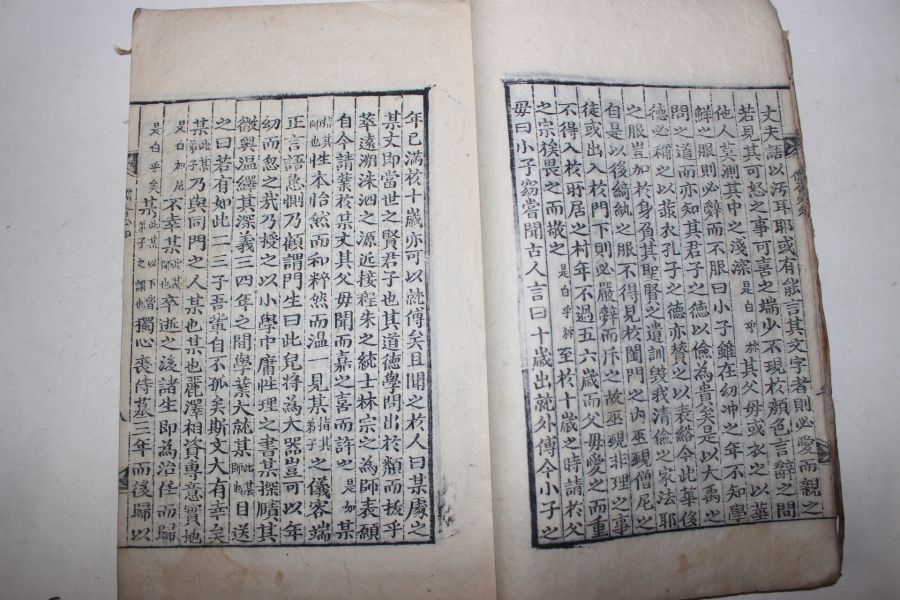 丈夫語以汚耳耶或有能言其文字者則必愛而親之
若見其可怒之事可喜之端少不現於顔色言辭之間
他人莫測其中之淺深是白乎㫆其父母或衣之以華
鮮之服則必辭而不服曰小子雖在幼冲之年不知學
問之道而亦知其君子之德以儉為貴矣是以大禹之
德必稱之以菲衣孔子之德亦賛之以表綌今此華侈
之服豈加於身負其聖賢之遺訓毁我清儉之家法耶
自是以後綺紈之服不得見於閨門之內巫覡僧尼之
徒或出入於門下則必嚴辭而斥之故巫覡非理之事
不得入於所居之村年不過五六歲而父毋愛之而重
之宗族畏之而敬之是白乎㫆至於十歲之時請於父
毋曰小子窃嘗聞古人言曰十歲出就外傅今小子之
年已满於十歲亦可以就傅矣且聞之於人曰某處之
某丈即當世之賢君子也其道德學問出於類而抜乎
萃遠溯洙泗之源近接程朱之統士林宗之為師表願
自今請業於某丈其父毋聞而嘉之喜而許之是如某
指其師也性本怡然而和粹然而溫一見某指其弟子之儀容端
正言語懇惻乃顧謂門生曰此兒将為大器豈可以年
幼而忽之哉乃授之以小學中庸性理之書某探賾其
微奥温繹其深義三四年之間學業大就某此某師也目送
之曰若有如此二三子吾輩自不孤矣斯文大有幸矣
某此某弟子乃與同門之人某也某也麗澤相資專意實地
是白加尼不幸某此某師也卒逝之後諸生即為治任而歸
是白乎矣某此某以下當弟子之謂也獨心喪侍墓三年而後歸以